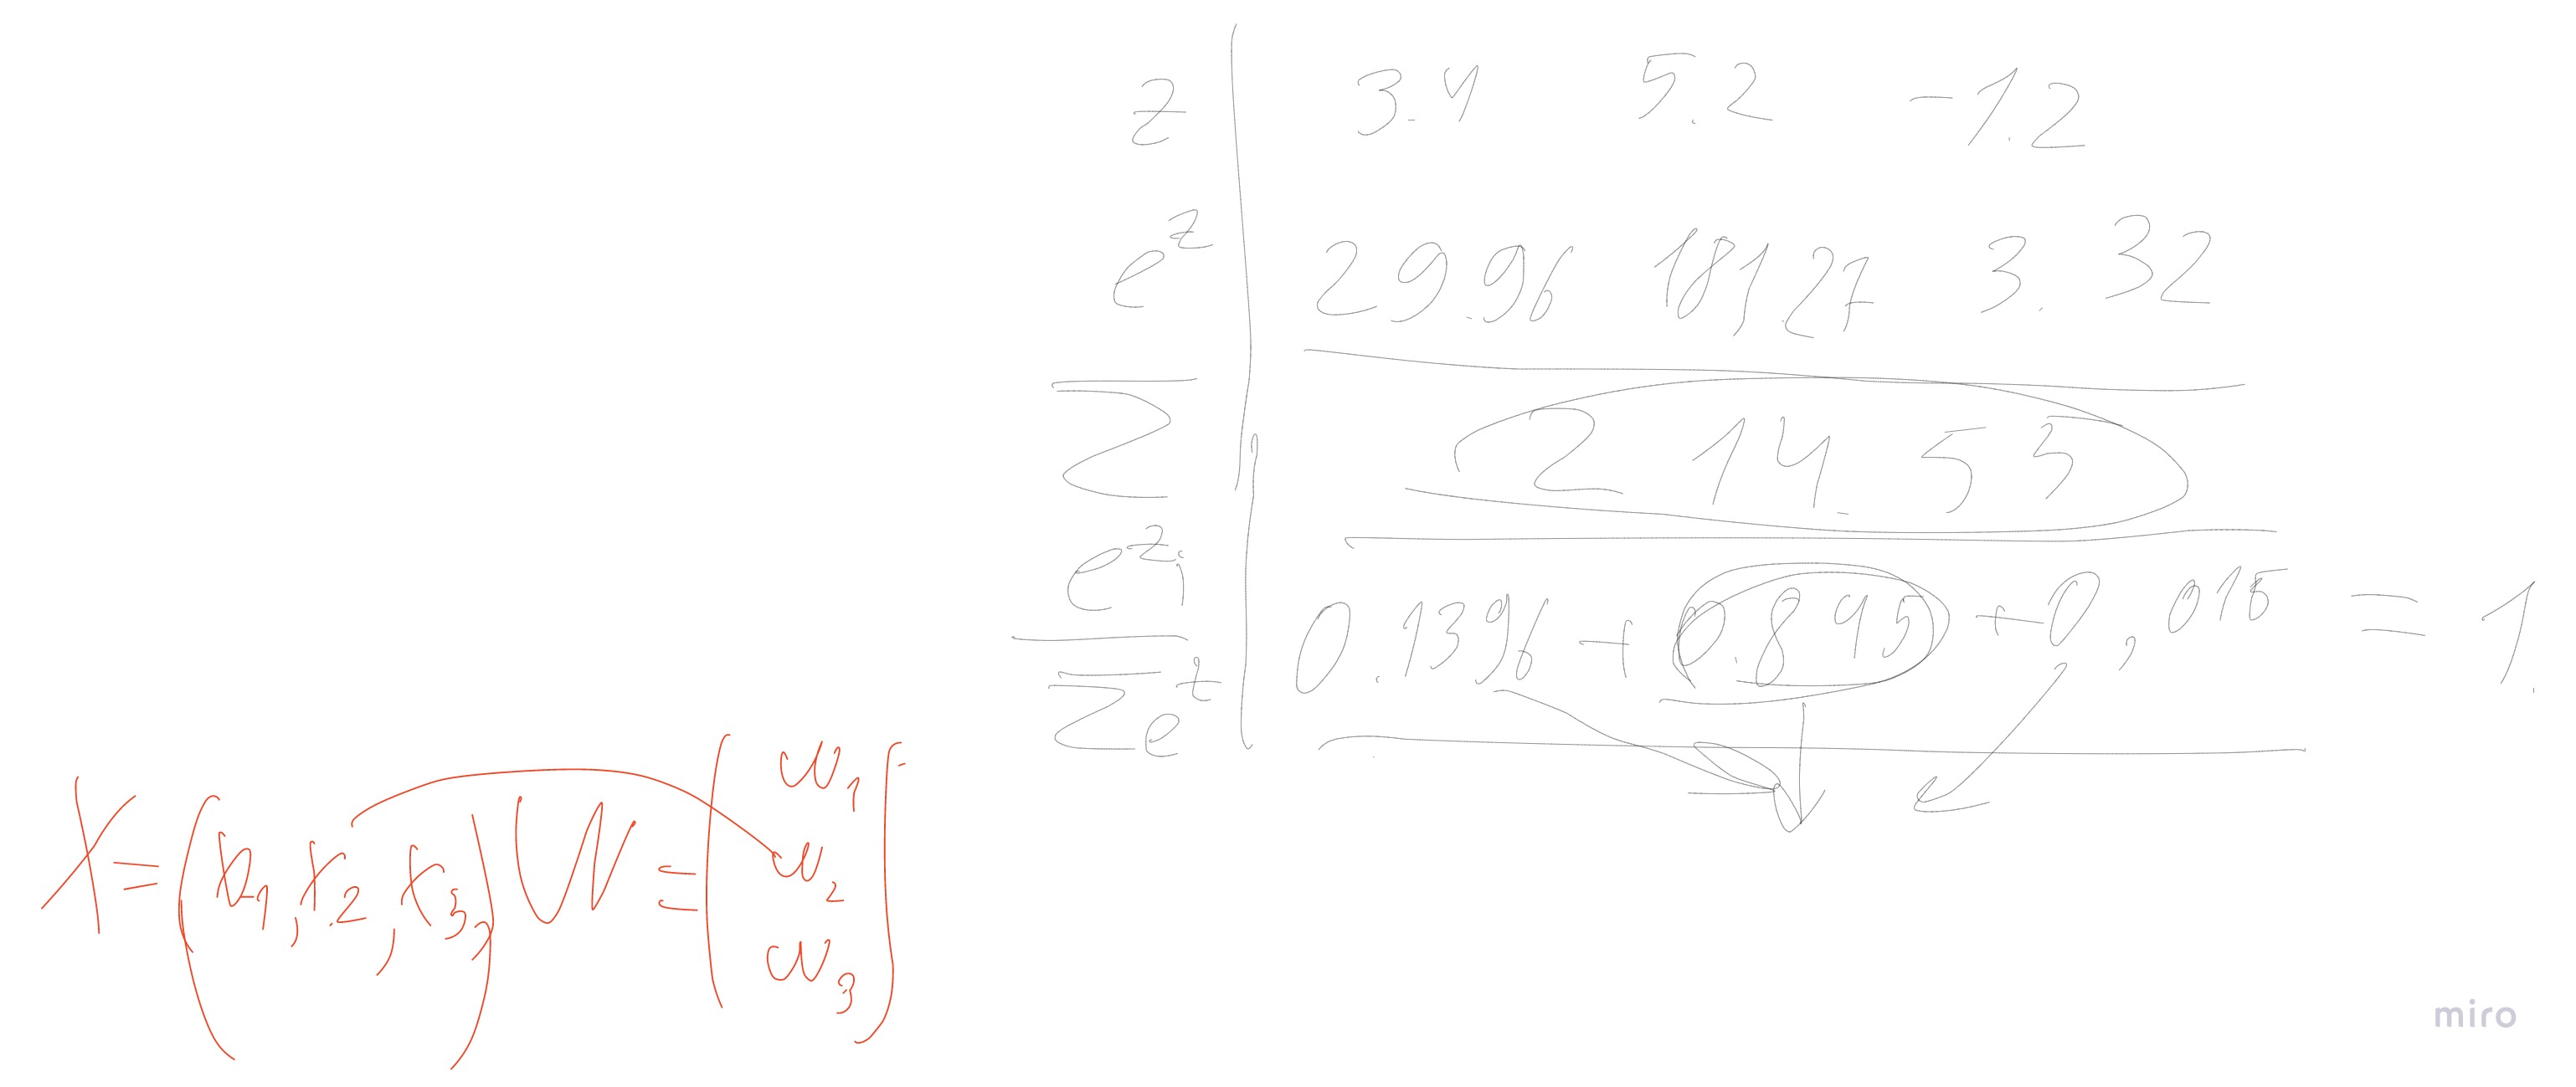 z 3.4 5.2 -1.2
e^z 29.96 181.27 3.32
Σ 214.55
e^{z_i} / Σ e^z 0.1396 + 0.845 + 0,015 = 1.
X = (x_1, x_2, x_3,) W = (w_1
w_2
w_3)
miro